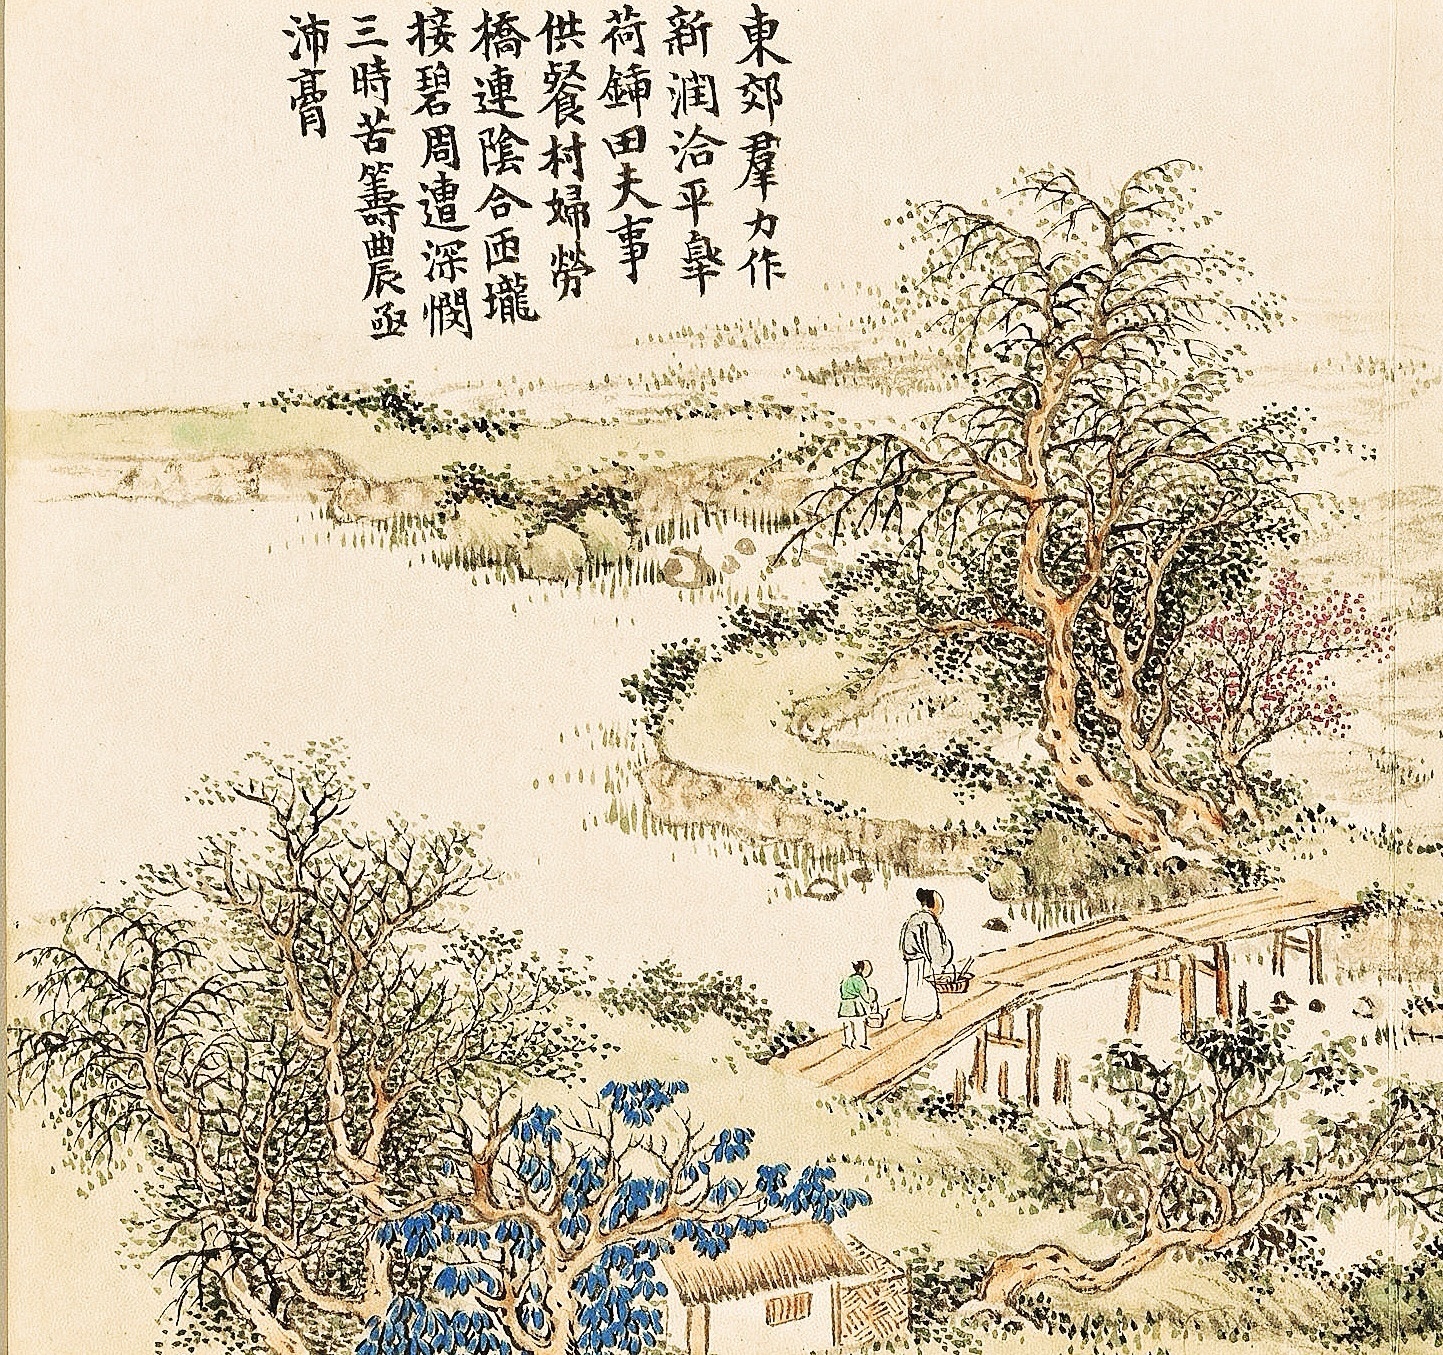 東郊羣力作
新潤洽平臯
荷鍤田夫事
供餐村婦勞
橋連陰合匝壠
接碧周遭深憫
三時苦籌農亟
沛膏